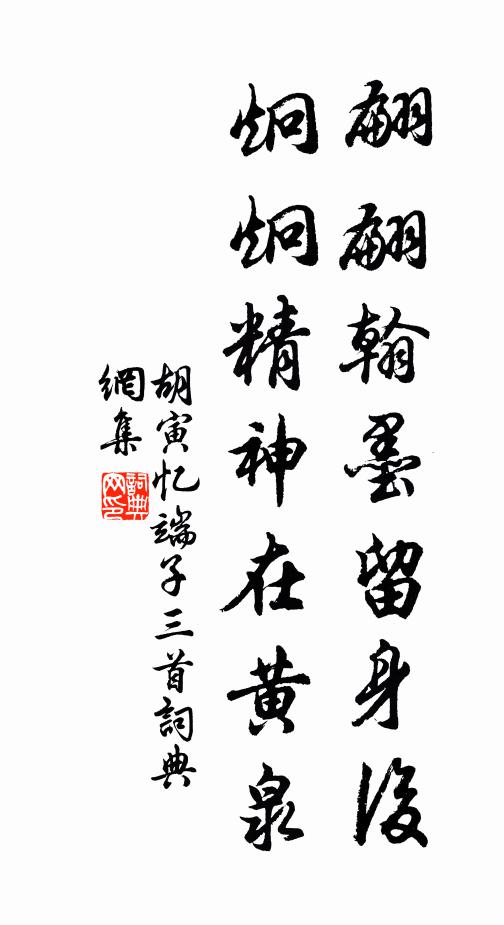 翩翩翰墨留身後
炯炯精神在黃泉
胡寅忆端子三首詞典
網集
詞典
网印